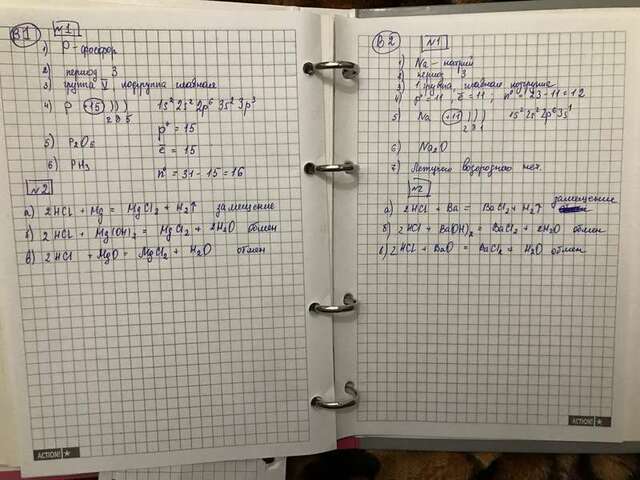 В1
№1
1) P - фосфор
2) период 3
3) группа V, подгруппа главная
4) P +15 ) ) ) 1s² 2s² 2p⁶ 3s² 3p³
2 8 5
p⁺ = 15
ē = 15
n⁰ = 31 - 15 = 16
5) P₂O₅
6) PH₃
№2
а) 2HCl + Mg = MgCl₂ + H₂↑ замещение
б) 2HCl + Mg(OH)₂ = MgCl₂ + 2H₂O обмен
в) 2HCl + MgO = MgCl₂ + H₂O обмен
ACTION!
В2
№1
1) Na - натрий
2) период 3
3) 1 группа, главная подгруппа
4) p⁺ = 11, ē = 11; n⁰ = 23 - 11 = 12
5) Na +11 ) ) ) 1s² 2s² 2p⁶ 3s¹
2 8 1
6) Na₂O
7) летучих водородных нет.
№2
а) 2HCl + Ba = BaCl₂ + H₂↑ замещение
б) 2HCl + Ba(OH)₂ = BaCl₂ + 2H₂O обмен
в) 2HCl + BaO = BaCl₂ + H₂O обмен
ACTION!